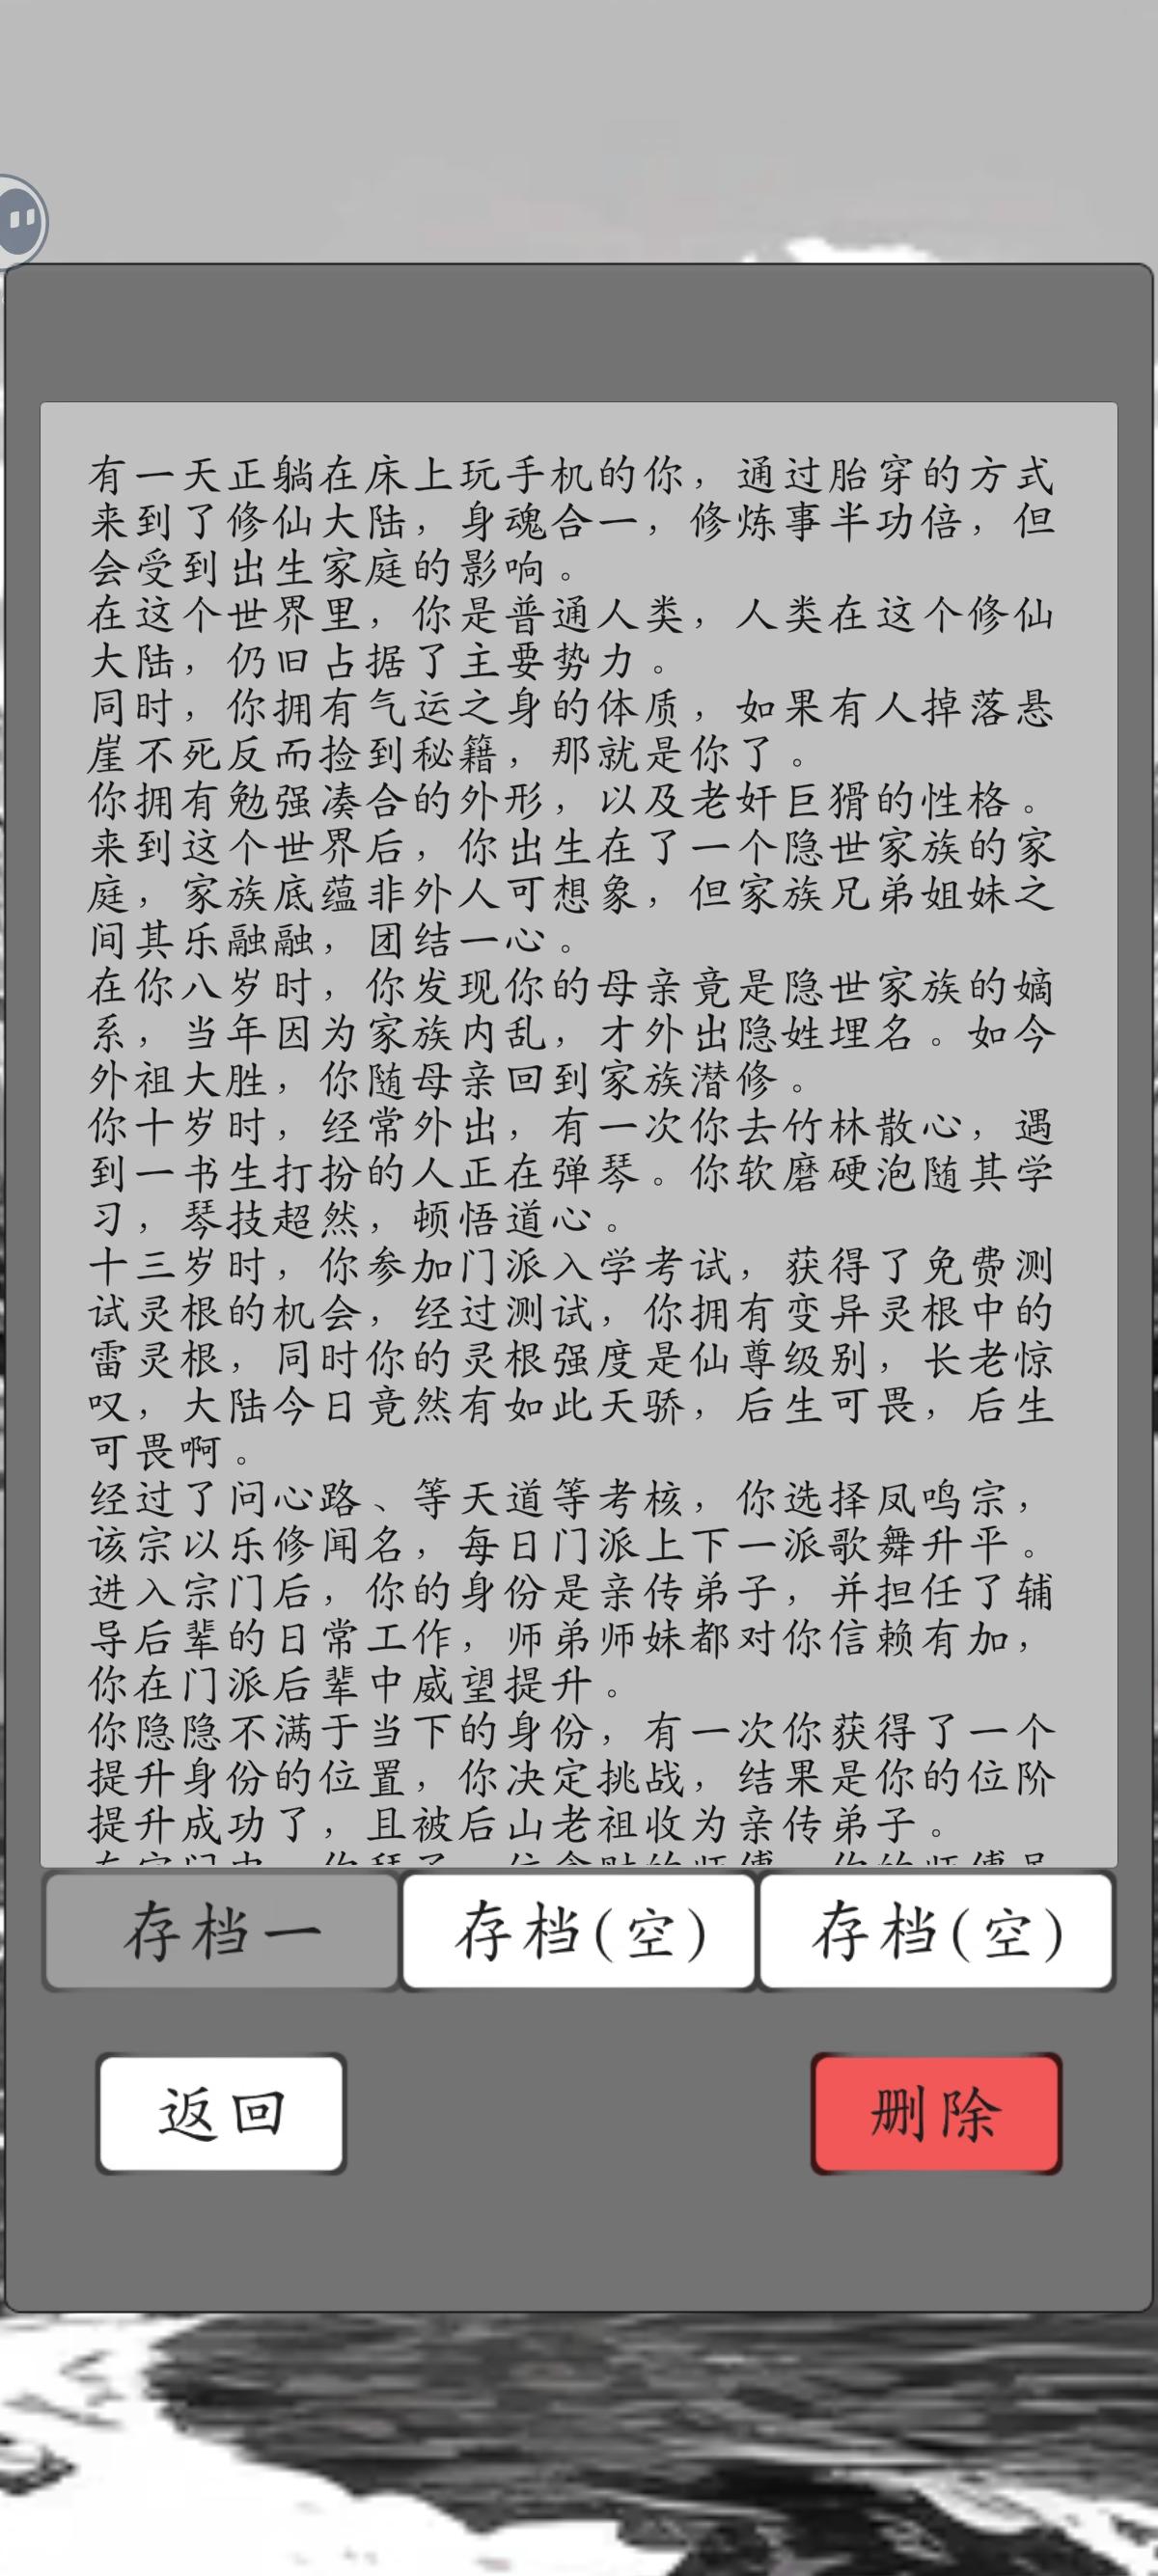 有一天正躺在床上玩手机的你，通过胎穿的方式
来到了修仙大陆，身魂合一，修炼事半功倍，但
会受到出生家庭的影响。
在这个世界里，你是普通人类，人类在这个修仙
大陆，仍旧占据了主要势力。
同时，你拥有气运之身的体质，如果有人掉落悬
崖不死反而捡到秘籍，那就是你了。
你拥有勉强凑合的外形，以及老奸巨猾的性格。
来到这个世界后，你出生在了一个隐世家族的家
庭，家族底蕴非外人可想象，但家族兄弟姐妹之
间其乐融融，团结一心。
在你八岁时，你发现你的母亲竟是隐世家族的嫡
系，当年因为家族内乱，才外出隐姓埋名。如今
外祖大胜，你随母亲回到家族潜修。
你十岁时，经常外出，有一次你去竹林散心，遇
到一书生打扮的人正在弹琴。你软磨硬泡随其学
习，琴技超然，顿悟道心。
十三岁时，你参加门派入学考试，获得了免费测
试灵根的机会，经过测试，你拥有变异灵根中的
雷灵根，同时你的灵根强度是仙尊级别，长老惊
叹，大陆今日竟然有如此天骄，后生可畏，后生
可畏啊。
经过了问心路、等天道等考核，你选择凤鸣宗，
该宗以乐修闻名，每日门派上下一派歌舞升平。
进入宗门后，你的身份是亲传弟子，并担任了辅
导后辈的日常工作，师弟师妹都对你信赖有加，
你在门派后辈中威望提升。
你隐隐不满于当下的身份，有一次你获得了一个
提升身份的位置，你决定挑战，结果是你的位阶
提升成功了，且被后山老祖收为亲传弟子。
存档一
存档(空)
存档(空)
返回
删除